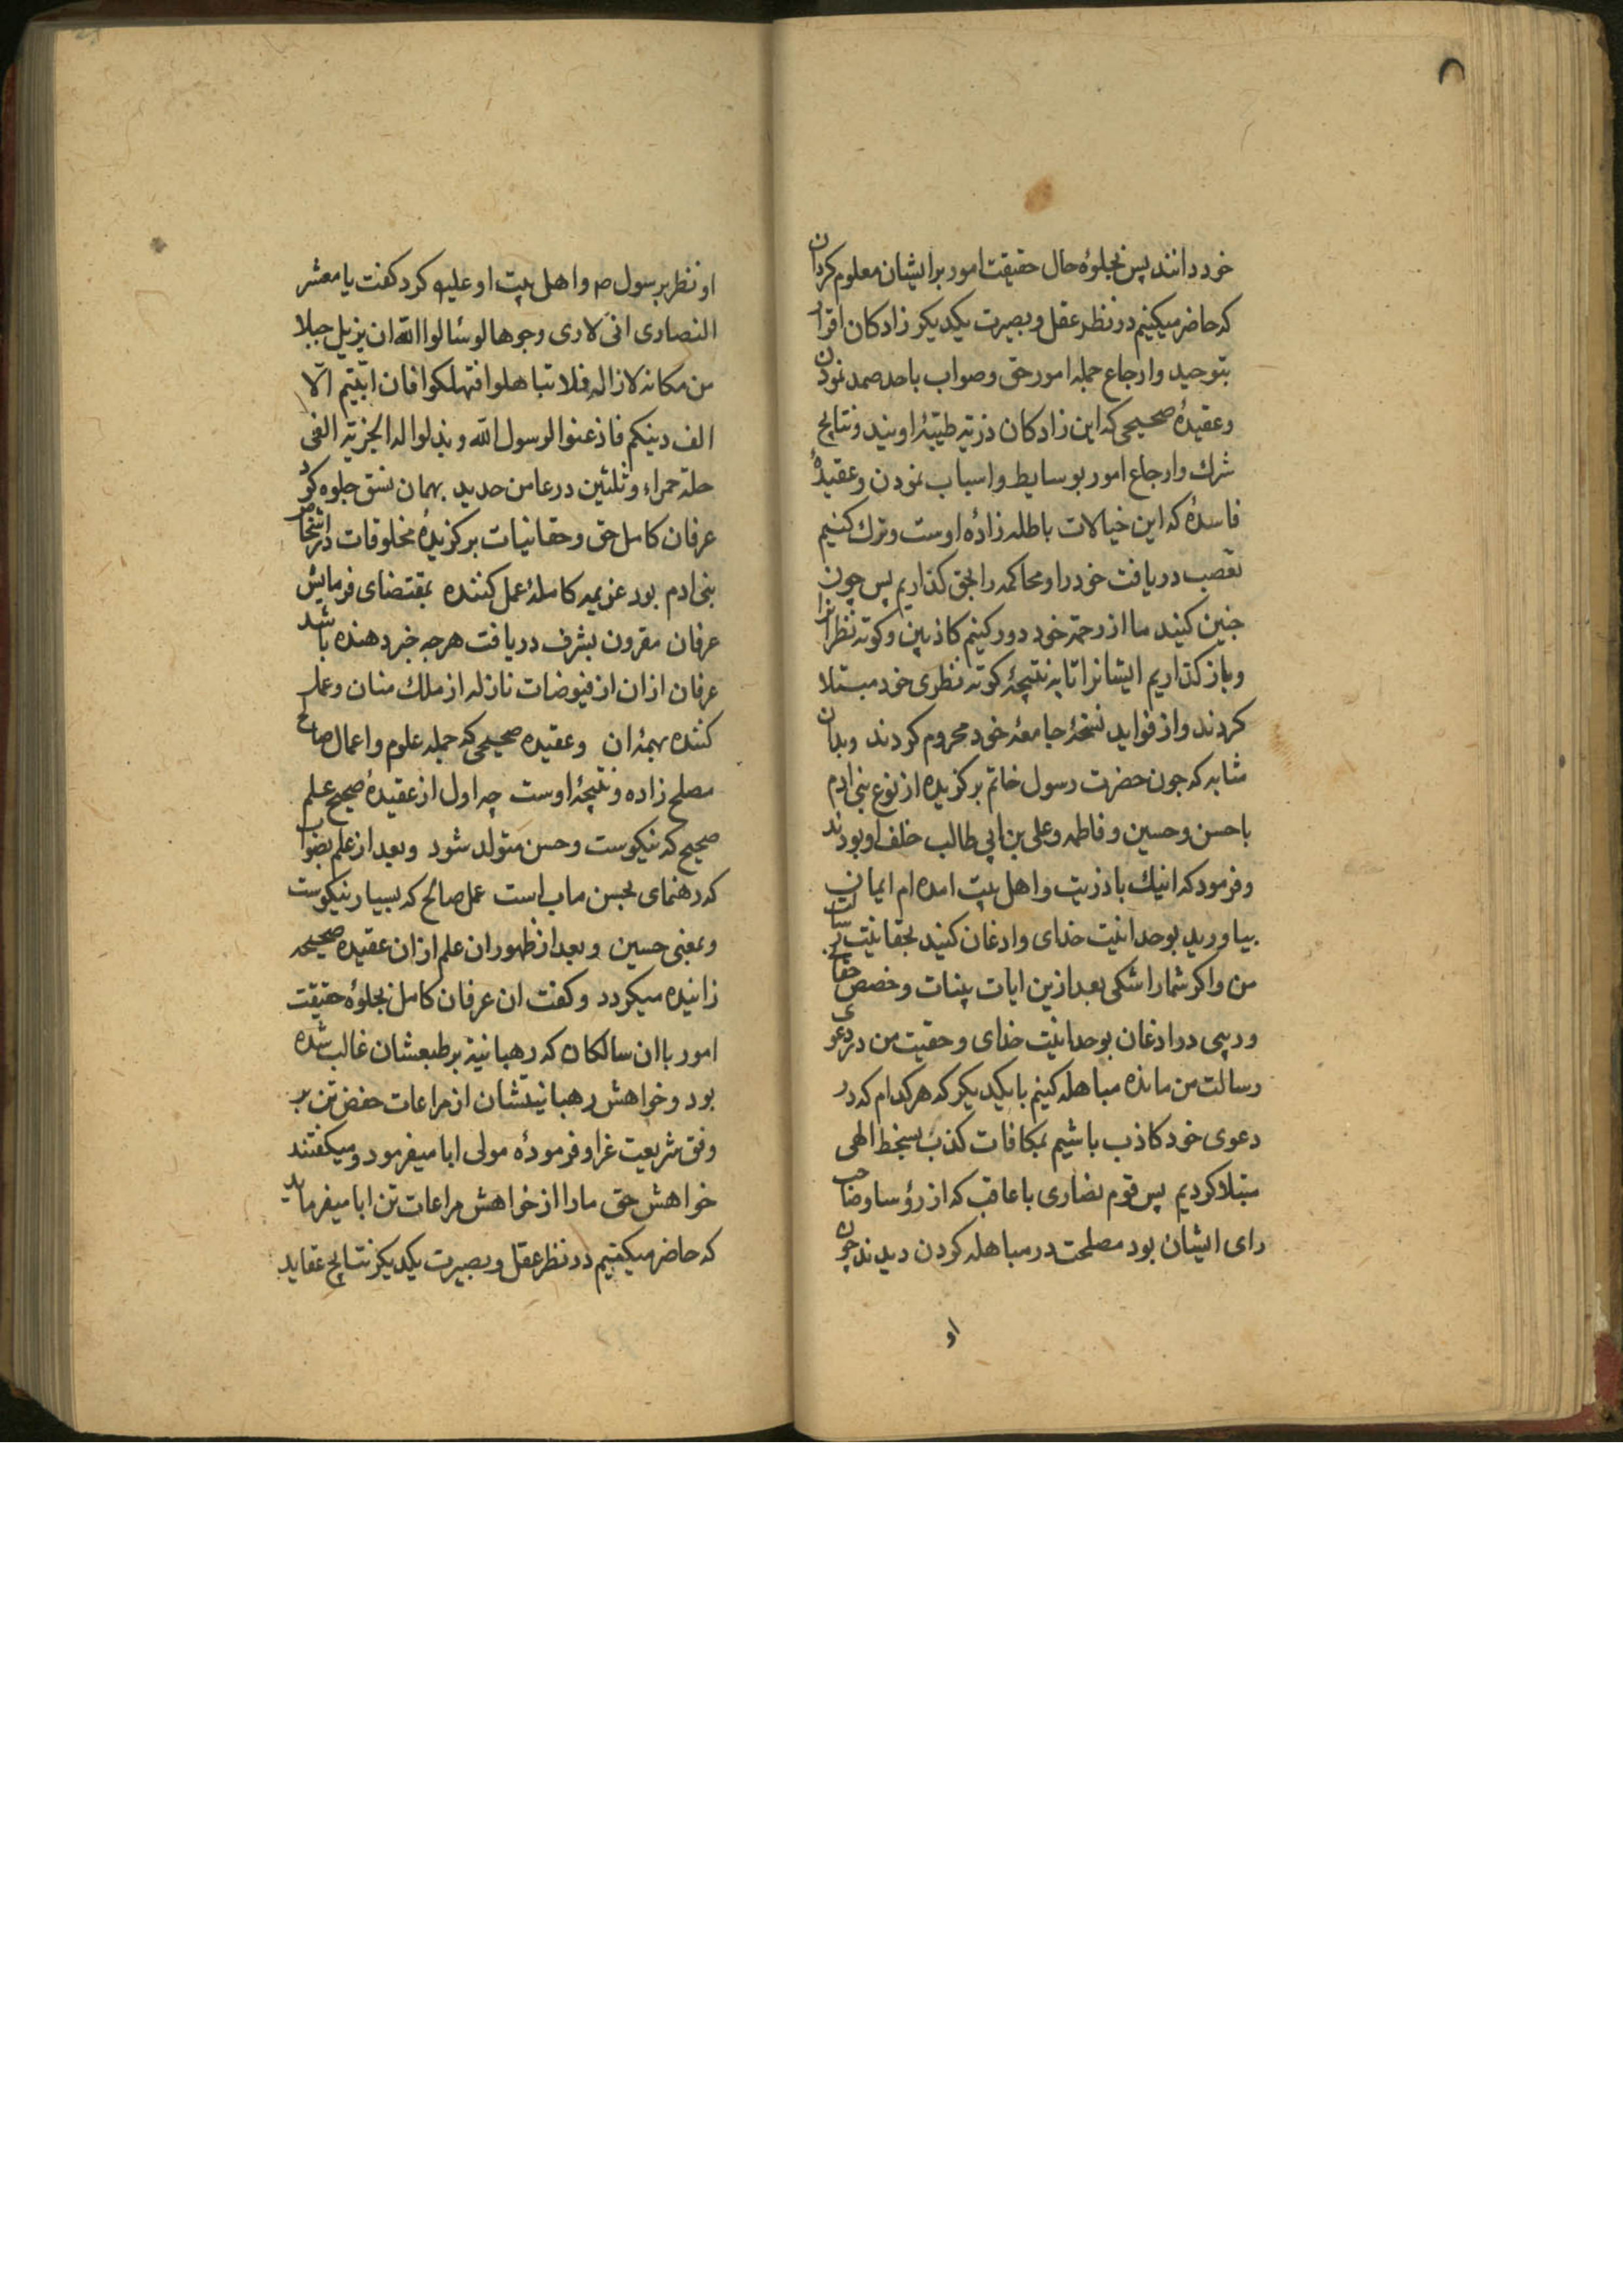 خود دانند پس بجلوه حال حقیقت امور بر ایشان معلوم کردان
که حاضر میکنیم در نظر عقل و بصیرت یکدیکر زادکان اقرار
بتوحید و ارجاع جمله امور حق و صواب باحد صمد نمودن
و عقیدۀ صحیحی که این زادکان ذریه طیبۀ اویند و نتایج
شرك و ارجاع امور بوسایط و اسباب نمودن و عقیدۀ
فاسدۀ که این خیالات باطله زادۀ اوست و ترك کنیم
تعصب دریافت خود را و محاکمه را بحق کذاریم پس چون
چنین کنید ما از رحمة خود دور کنیم کاذبین و کوته نظرانرا
و باز کذاریم ایشانرا تا به نتیجۀ کوته نظری خود مبتلا
کردند و از فواید نسخۀ جامعۀ خود محروم کردند و بدان
مثابه که جون حضرت رسول خاتم برکزیده از نوع بنی ادم
با حسن و حسین و فاطمه و علی بن ابی طالب خلف او بودند
و فرمود که اینك با ذریت و اهل بیت امده ام ایمان
بیاورید بوحدانیت خدای و ادغان کنید بحقانیت رسالت
من و اکر شما را شکی بعد ازین ایات بینات و خصص حقا
و ریبی در ادغان بوحدانیت خدای و حقیت من در دعوی
رسالت من مانده مباهله کنیم با یکدیکر که هر کدام که در
دعوی خود کاذب باشیم بمکافات کذب بسخط الهی
مبتلا کردیم پس قوم نصاری با عاقب که از رؤسا و صاحب
رای ایشان بود مصلحت در مباهله کردن دیدند چون
او
او نظر برسول ص و اهل بیت او علیه کرد کفت یا معشر
النصاری انی لاری وجوها لو سئالوا الله ان یزیل جبلا
من مکانه لازاله فلا تباهلوا فتهلکوا فان ابیتم الّا
الف دینکم فاذعنوا لرسول الله و بذلوا له الجزیة الفی
حلة حمراء و ثلثین درعا من حدید بهمان نسق جلوه کرد
عرفان کامل حق و حقانیات برکزیدۀ مخلوقات در اشخاص
بنی ادم بود عزیمه کاملۀ عمل کننده بمقتضای فرمایش
عرفان مقرون بشرف دریافت هرجه خبر دهنده باشد
عرفان ازان از فیوضات نازله از ملك منان و عمل
کننده بهمۀ ان و عقیده صحیحی که جمله علوم و اعمال صالح
مصلح زاده و نتیجۀ اوست چه اول از عقیدۀ صحیح علم
صحیح که نیکوست و حسن متولد شود و بعد از علم بصواب
که رهنمای بحسن ماب است عمل صالح که بسیار نیکوست
و بمعنی حسین و بعد از ظهور ان علم ازان عقیده صحیحه
زانیده میکردد و کفت ان عرفان کامل بجلوۀ حقیقت
امور با ان سالکان که رهبانیة بر طبعشان غالب شده
بود و خواهش رهبانیتشان از مراعات حفض تن بر
وفق شریعت غرا و فرمودۀ مولی ابا میفرمود و میکفتند
خواهش حق ما را از خواهش مراعات تن ابا میفرماید
که حاضر میکنیم در نظر عقل و بصیرت یکدیکر نتایج عقاید